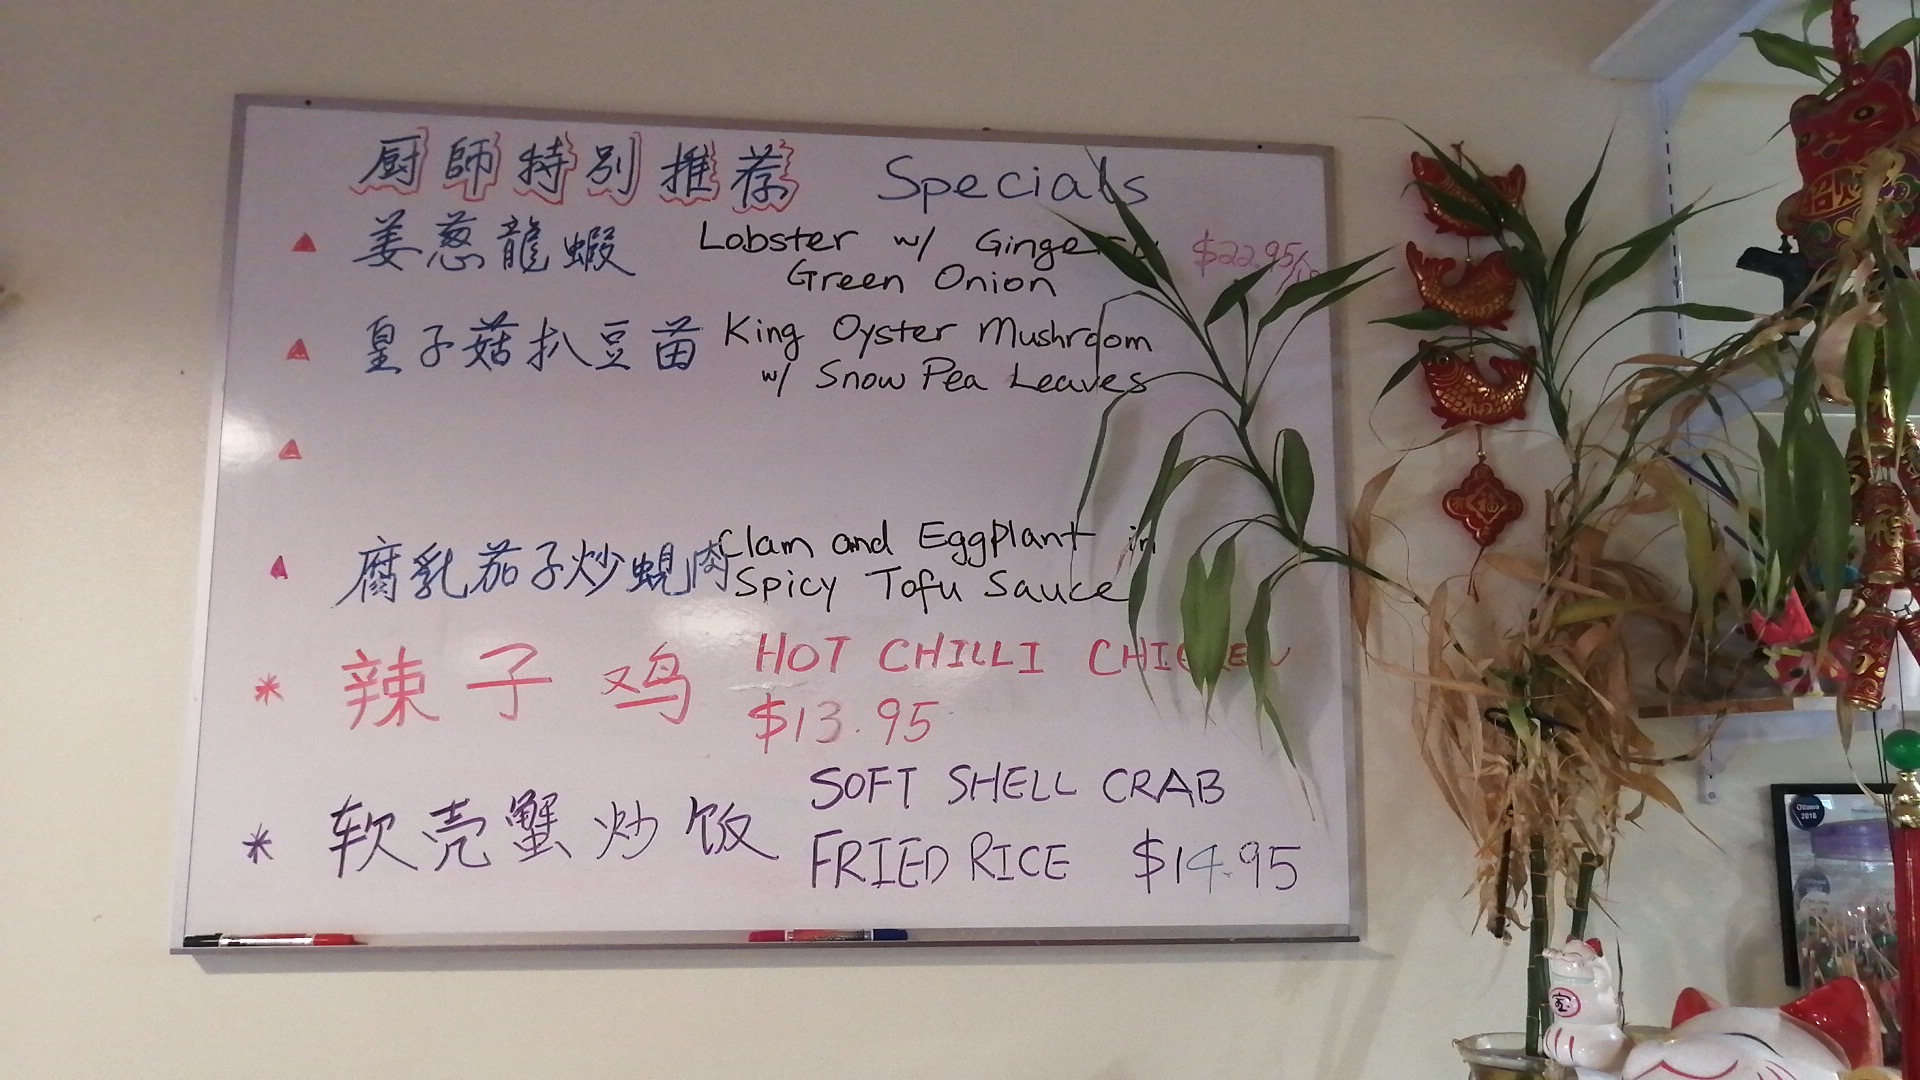 厨師特别推荐 Specials
▲ 姜葱龍蝦 Lobster w/ Ginger
Green Onion
▲ 皇子菇扒豆苗 King Oyster Mushroom
w/ Snow Pea Leaves
▲
▲ 腐乳茄子炒蜆肉 Clam and Eggplant in
Spicy Tofu Sauce
* 辣子鸡 HOT CHILLI CHICKEN
$13.95
* 软壳蟹炒饭 SOFT SHELL CRAB
FRIED RICE $14.95
$22.95/lb
福
Ottawa
2018